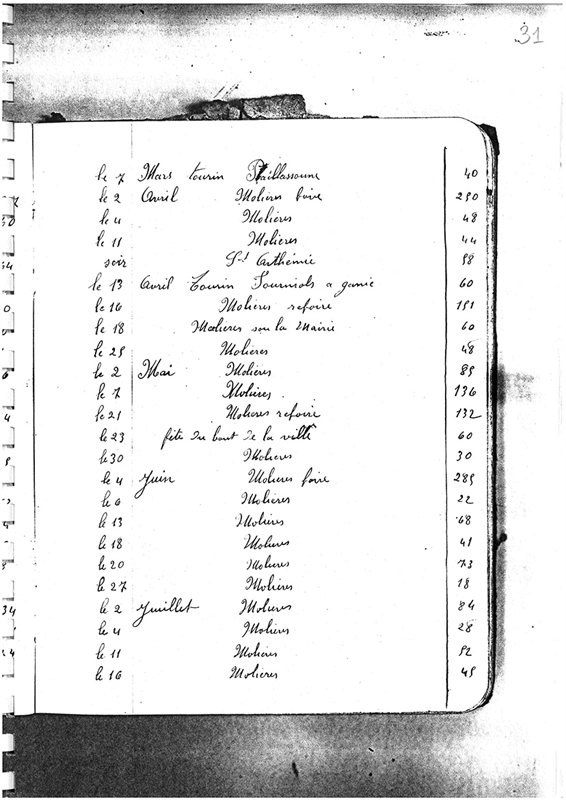 31
le 7 Mars tourin Paillassoune 40
le 2 Avril Molières foire 250
le 4 Molières 48
le 11 Molières 44
soir St Arthémie 58
le 13 Avril Tourin Tourniols a ganic 60
le 16 Molières refoire 151
le 18 Molières sou la Mairie 60
le 25 Molières 48
le 2 Mai Molières 85
le 7 Molières 136
le 21 Molières refoire 132
le 23 fête du bout de la ville 60
le 30 Molières 30
le 4 Juin Molières foire 285
le 6 Molières 22
le 13 Molières 68
le 18 Molières 41
le 20 Molières 73
le 27 Molières 18
le 2 Juillet Molières 84
le 4 Molières 28
le 11 Molières 52
le 16 Molières 45